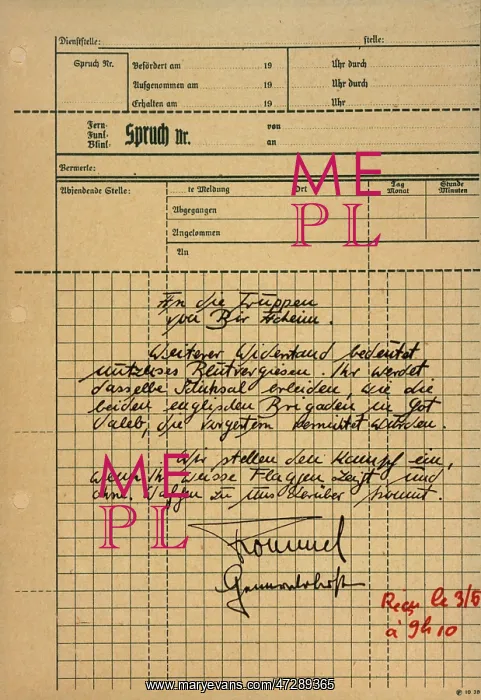 Dienststelle: stelle:
Spruch Nr. Befördert am 19 Uhr durch
Aufgenommen am 19 Uhr durch
Erhalten am 19 Uhr
Fern-
Funk-
Blink-
Spruch nr. von
an
Vermerke:
Absendende Stelle: te Meldung Ort Tag Monat Stunde Minuten
Abgegangen
Angekommen
An
ME
PL
An die Truppen
von Bir Acheim.
Weiterer Widerstand bedeutet
nutzloses Blutvergiesen. Ihr werdet
dasselbe Schicksal erleiden, wie die
beiden englischen Brigaden in Got
Saleb, die vorgestern vernichtet wurden.
Wir stellen den Kampf ein,
wenn Ihr weisse Flaggen zeigt und
ohne Waffen zu uns herüber kommt.
ME
PL
Rommel
Generaloberst
Reçu le 3/6
à 9h10
www.maryevans.com/47289365